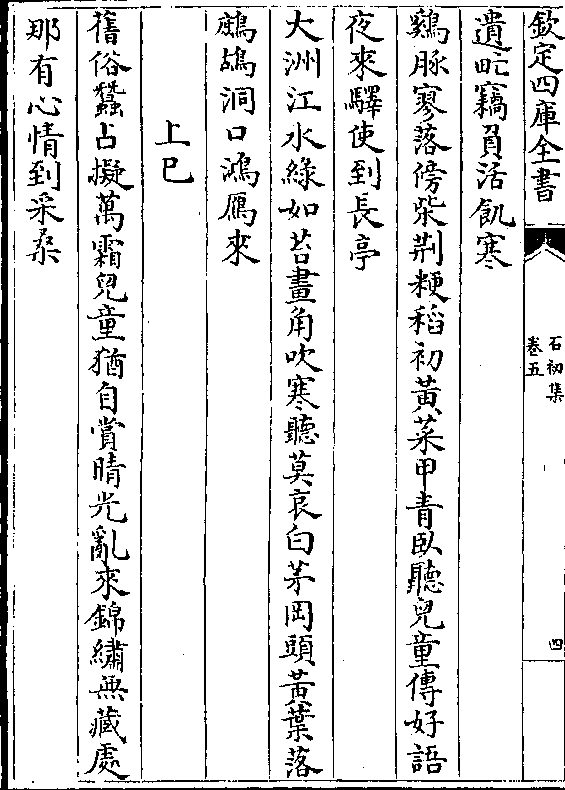 欽定四庫全書
石初集
卷五
四
遺甿竊負活飢寒
鷄豚寥落傍柴荆粳稻初黄菜甲青臥聽兒童傳好語
夜來驛使到長亭
大洲江水綠如苔畫角吹寒聽莫哀白茅岡頭黄葉落
鷓鴣洞口鴻鴈來
上巳
舊俗蠶占擬萬霜兒童猶自賞晴光亂來錦繡無藏處
那有心情到采桑